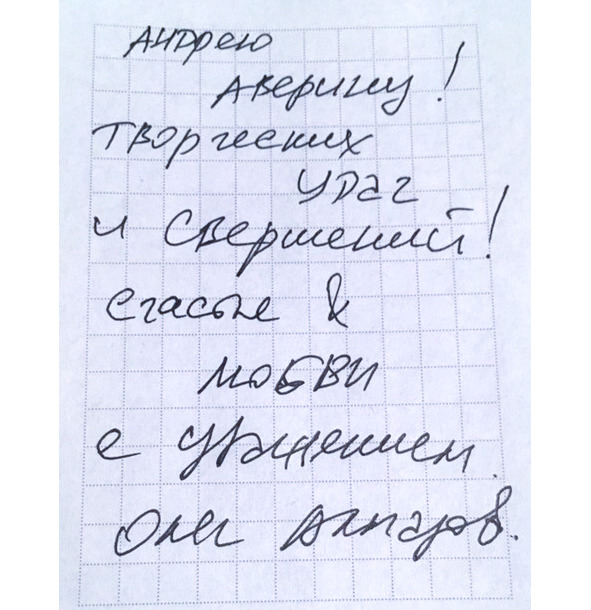 Андрею
Аверину!
Творческих
удач
и свершений!
Счастье &
любви
с уважением
Олег